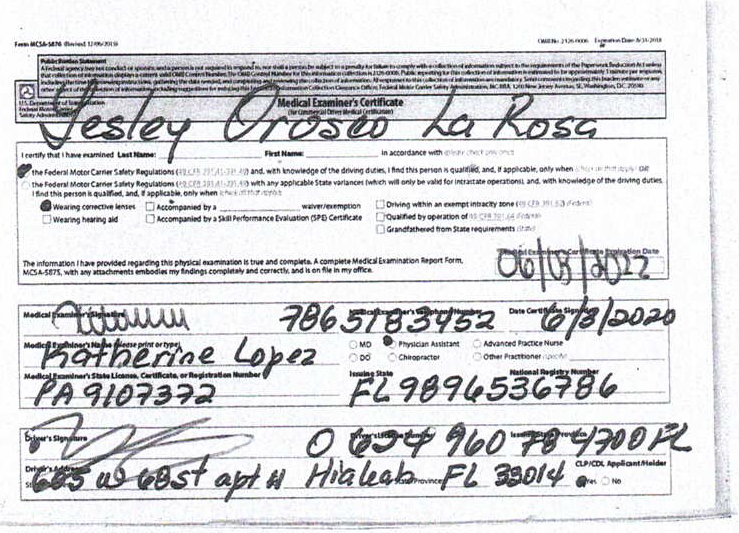 Form MCSA-5876 (Revised 12/06/2015) OMB No. 2126-0006 Expiration Date: 8/31/2018
Public Burden Statement
A Federal agency may not conduct or sponsor, and a person is not required to respond to, nor shall a person be subject to a penalty for failure to comply with a collection of information subject to the requirements of the Paperwork Reduction Act unless
that collection of information displays a current valid OMB Control Number. The OMB Control Number for this information collection is 2126-0006. Public reporting for this collection of information is estimated to be approximately 1 minute per response,
including the time for reviewing instructions, gathering the data needed, and completing and reviewing the collection of information. All responses to this collection of information are mandatory. Send comments regarding this burden estimate or any
other aspect of this collection of information, including suggestions for reducing this burden to: Information Collection Clearance Officer, Federal Motor Carrier Safety Administration, MC-RRA, 1200 New Jersey Avenue, SE, Washington, D.C. 20590.
U.S. Department of Transportation
Federal Motor Carrier
Safety Administration
Medical Examiner's Certificate
(for Commercial Driver Medical Certification)
Yesley Orosco La Rosa
I certify that I have examined Last Name: First Name: in accordance with (please check only one):
the Federal Motor Carrier Safety Regulations (49 CFR 391.41-391.49) and, with knowledge of the driving duties, I find this person is qualified, and, if applicable, only when (check all that apply) OR
the Federal Motor Carrier Safety Regulations (49 CFR 391.41-391.49) with any applicable State variances (which will only be valid for intrastate operations), and, with knowledge of the driving duties,
I find this person is qualified, and, if applicable, only when (check all that apply):
Wearing corrective lenses Accompanied by a waiver/exemption Driving within an exempt intracity zone (49 CFR 391.62) (Federal)
Wearing hearing aid Accompanied by a Skill Performance Evaluation (SPE) Certificate Qualified by operation of 49 CFR 391.64 (Federal)
Grandfathered from State requirements (State)
Medical Examiner's Certificate Expiration Date
The information I have provided regarding this physical examination is true and complete. A complete Medical Examination Report Form,
MCSA-5875, with any attachments embodies my findings completely and correctly, and is on file in my office.
06/03/2022
Medical Examiner's Signature Medical Examiner's Telephone Number Date Certificate Signed
7865183452 6/3/2020
Medical Examiner's Name (please print or type) MD Physician Assistant Advanced Practice Nurse
Katherine Lopez DO Chiropractor Other Practitioner (specify)
Medical Examiner's State License, Certificate, or Registration Number Issuing State National Registry Number
PA 9107372 FL 9896536786
Driver's Signature Driver's License Number Issuing State/Province
O 624 960 78 4700 FL
Driver's Address CLP/CDL Applicant/Holder
685 w 68st apt Hialeah State/Province FL 33014 Yes No